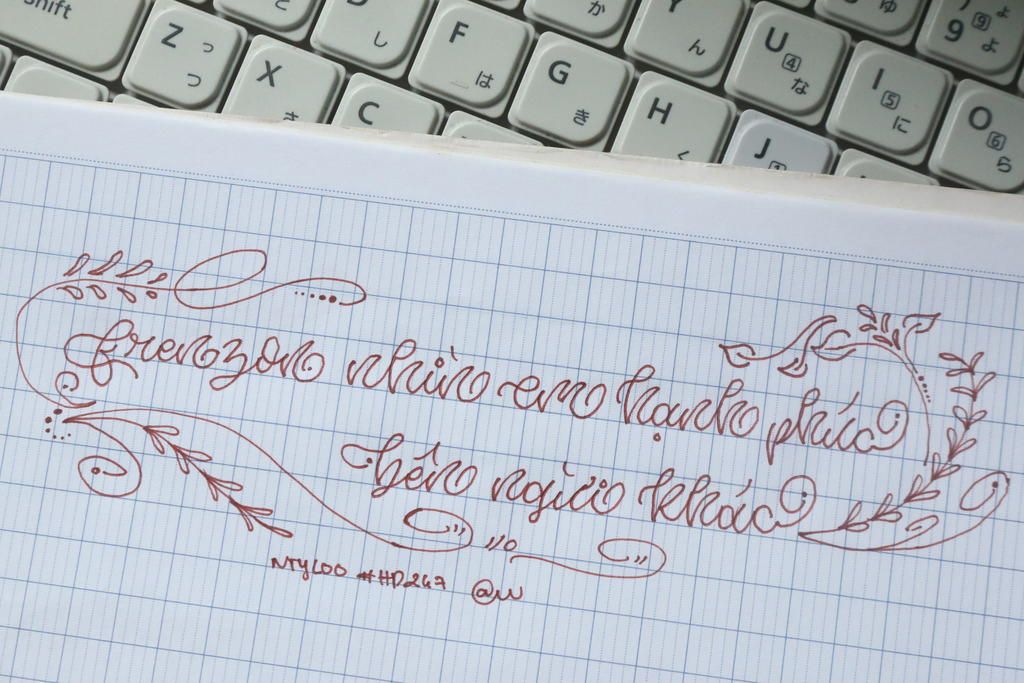 Shift
Z っ つ
X さ
C
D し
F は
G き
H く
J
か
Y ん
U 4 な
I 5 に
O 6 ら
ゅ
9 9 ょ よ
frenzon nhìn em hạnh phúc
bên người khác
NTYLOO #HD247 @w